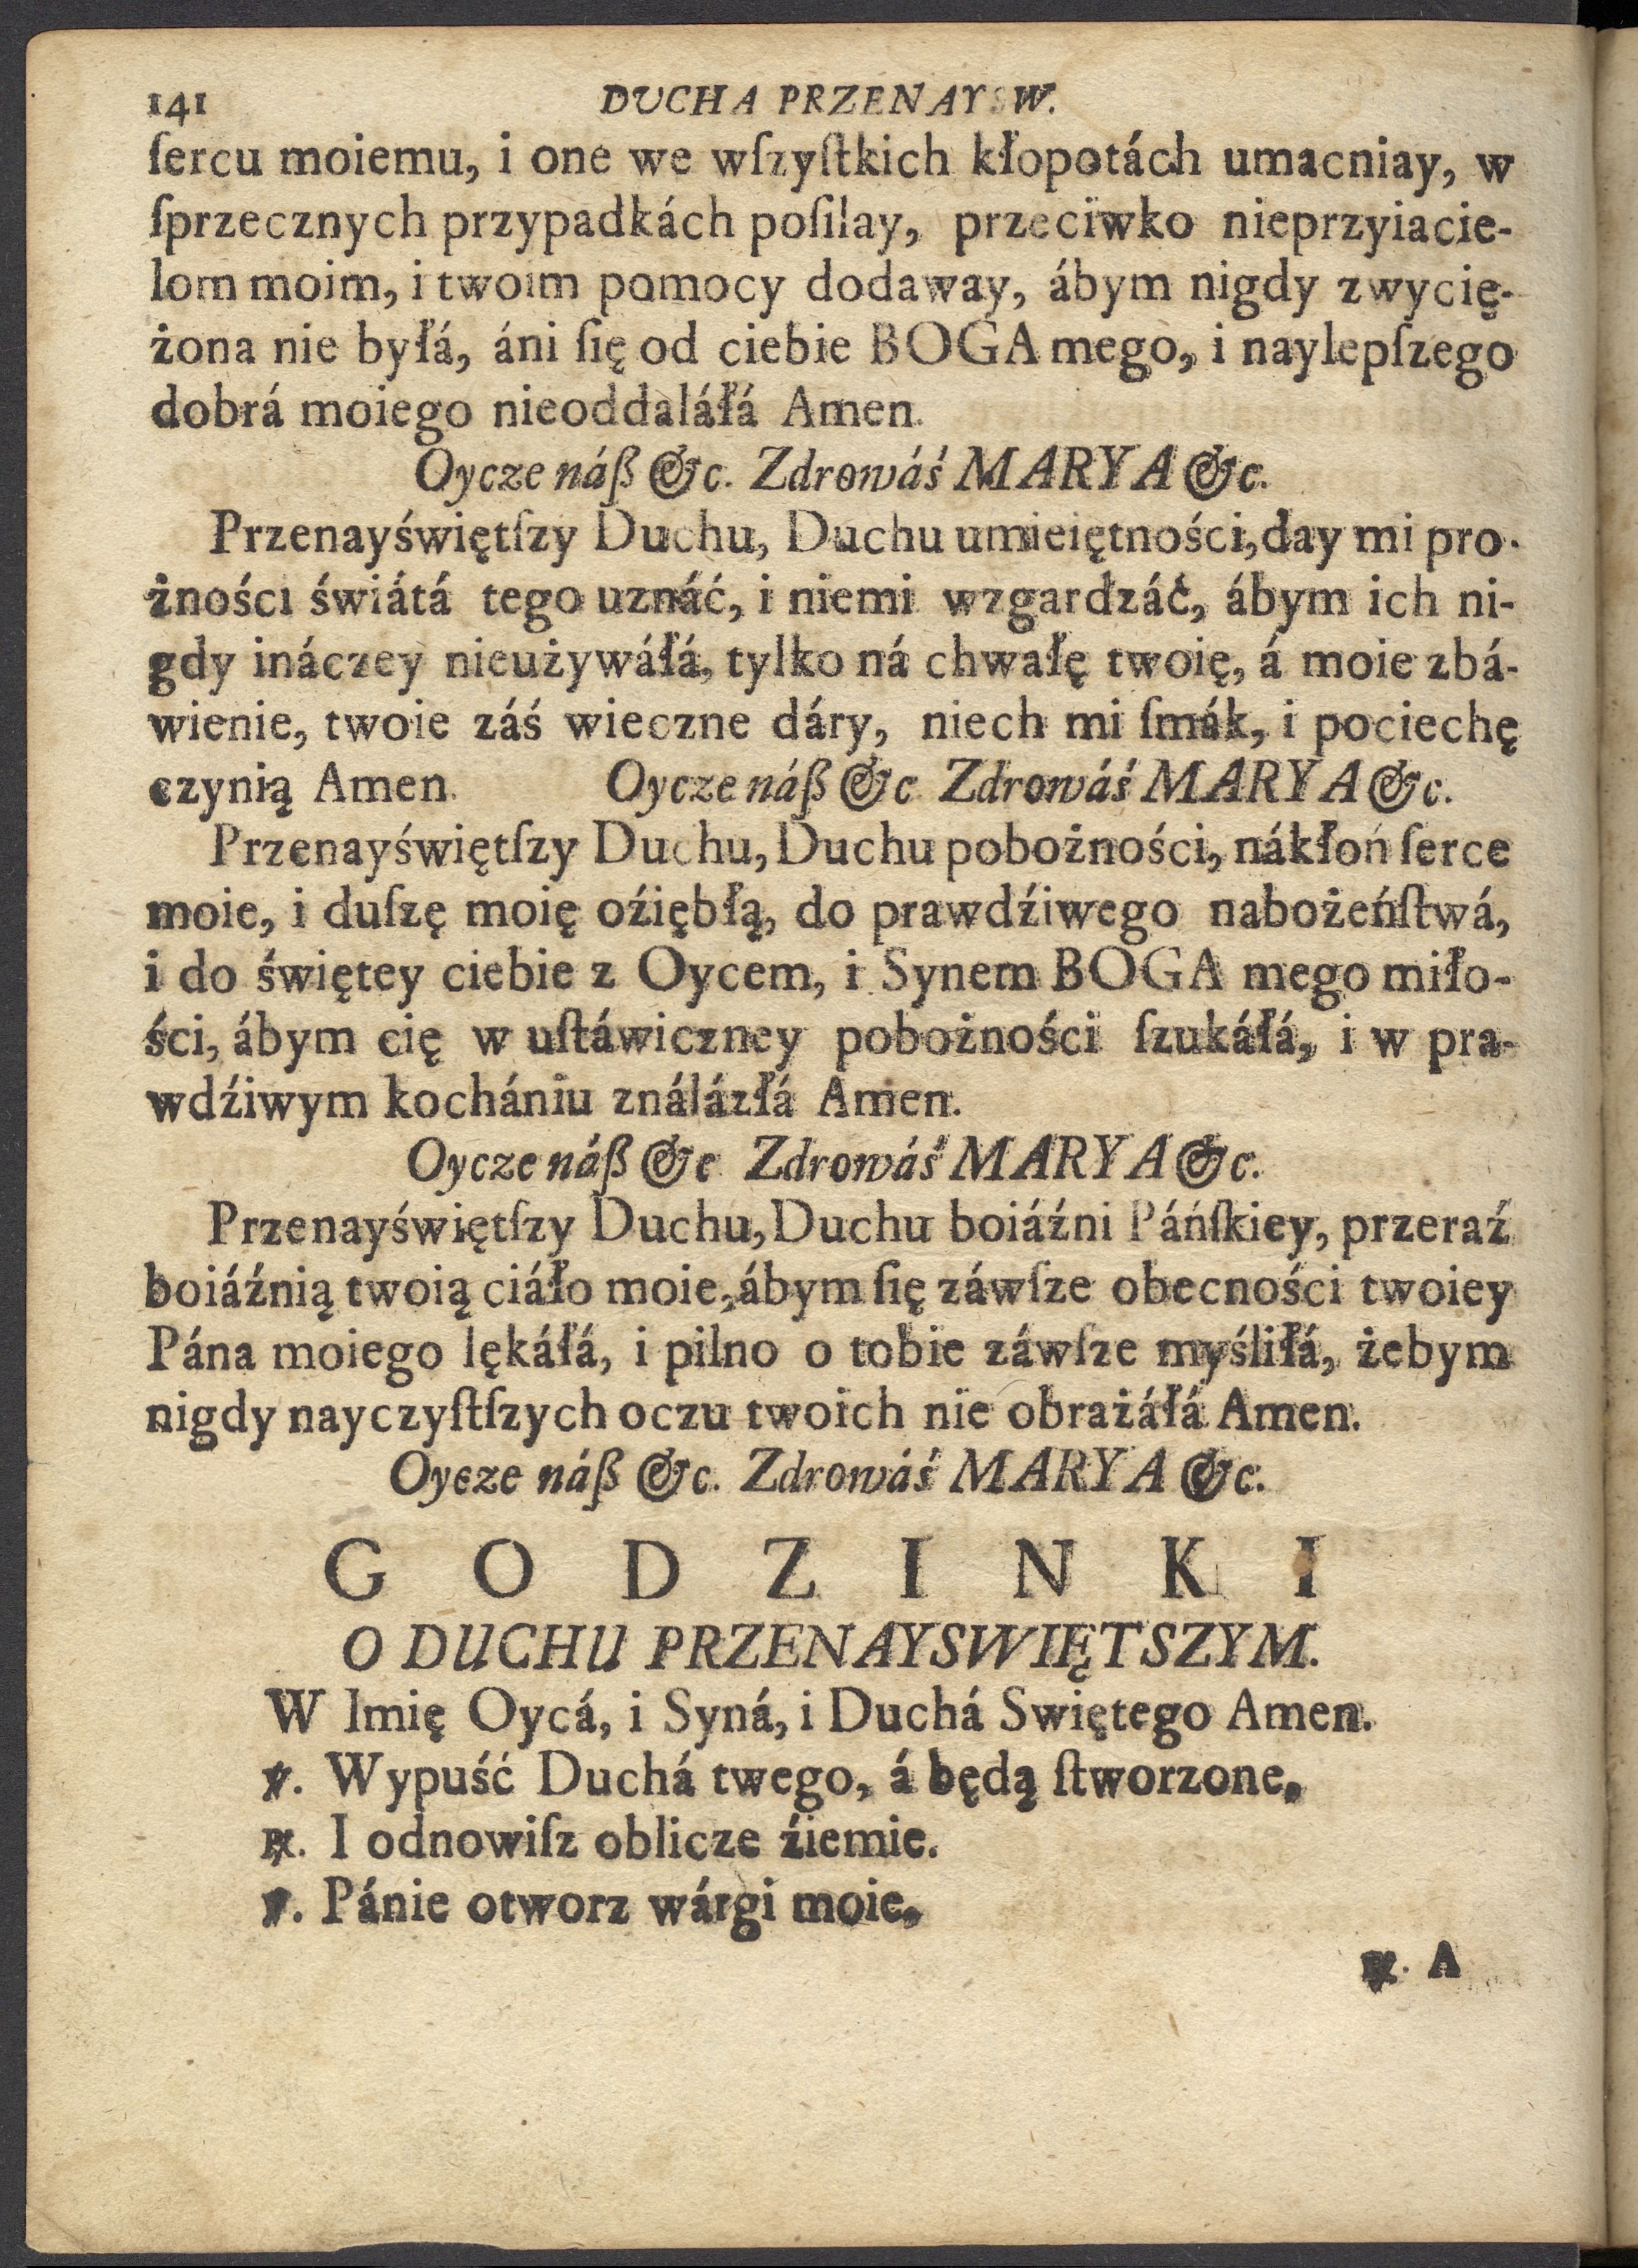 141 DUCHA PRZENAYSW.
ſercu moiemu, i one we wſzyſtkich kłopotách umacniay, w
ſprzecznych przypadkách poſilay, przeciwko nieprzyiacie-
lom moim, i twoim pomocy dodaway, ábym nigdy zwycię-
żona nie byłá, áni ſię od ciebie BOGA mego, i naylepſzego
dobrá moiego nieoddaláłá Amen.
Oycze náß &c. Zdrowáś MARYA &c.
Przenayświętſzy Duchu, Duchu umieiętności, day mi pro-
żności świátá tego uznáć, i niemi wzgardzáć, ábym ich ni-
gdy ináczey nieużywáłá, tylko ná chwałę twoię, á moie zbá-
wienie, twoie záś wieczne dáry, niech mi ſmák, i pociechę
czynią Amen. Oycze náß &c Zdrowáś MARYA &c.
Przenayświętſzy Duchu, Duchu pobożności, nákłoń ſerce
moie, i duſzę moię oźiębłą, do prawdźiwego nabożeńſtwá,
i do świętey ciebie z Oycem, i Synem BOGA mego miło-
ści, ábym cię w uſtáwiczney pobożności ſzukáłá, i w pra-
wdźiwym kochániu ználázłá Amen.
Oycze náß &c Zdrowáś MARYA &c.
Przenayświętſzy Duchu, Duchu boiáźni Páńſkiey, przeraź
boiáźnią twoią ciáło moie, ábym ſię záwſze obecności twoiey
Pána moiego lękáłá, i pilno o tobie záwſze myśliłá, żebym
nigdy nayczyſtſzych oczu twoich nie obrażáłá Amen.
Oycze náß &c. Zdrowáś MARYA &c.
GODZINKI
O DUCHU PRZENAYSWIĘTSZYM.
W Imię Oycá, i Syná, i Duchá Swiętego Amen.
℣. Wypuść Duchá twego, á będą ſtworzone,
℟. I odnowiſz oblicze źiemie.
℣. Pánie otworz wárgi moie,
℟. A